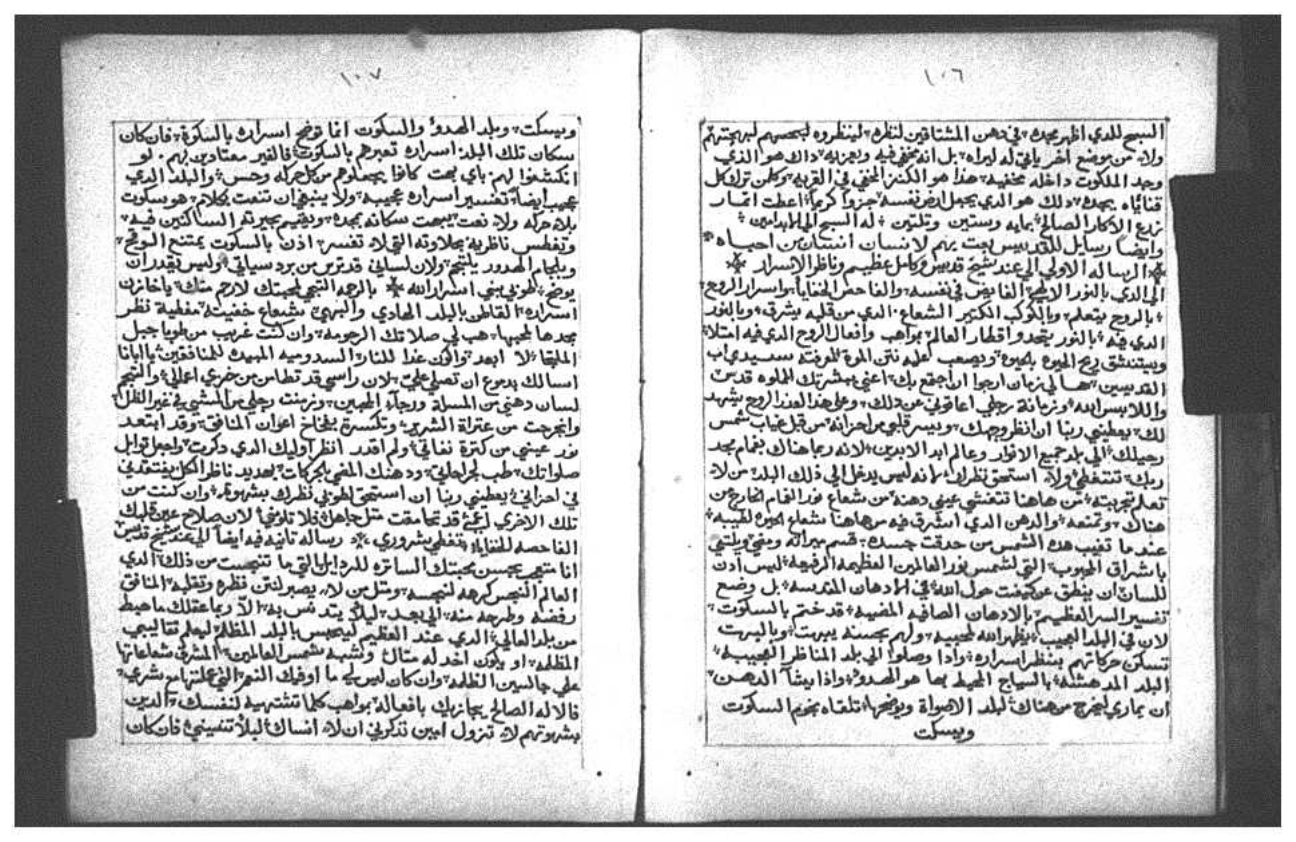 ١٠٦
السبح للدي اظهر مجده في دهن المشتاقين لنظره لينظروه
ولا من موضع اخر ياتي له ليراه بل انه مخفي فيه
وجد الملكوت داخله مخفيه هذا هو الكنز المخفي في القريه وكلمن ترك كل
قناياه يجده دلك هو الدي يجعل ارض نفسه اعطت اتمار
زريع الاكار الصالح بمايه وستين وتلتين له السبح الي ابد
وايضا رسايل للقديس بعت بهم لانسان انسان من احباه
الرساله الاولي الي عند شيخ قديس وكامل عظيم وناظر الاسرار
الي الدي بالنور الابهج الفايض في نفسه والفاحص الخفايا واسرار الروح
بالروح يتعلم وبالكوكب الكتير الشعاع الدي من قلبه يشرق وبالنور
الدي فيه بالنور يتحد واقطار العالم بمواهب وافعال الروح الدي فيه امتلا
ويستنشق ريح الحيوه بالحيوه ويصعب عليه نتن الموت لمعرفته سيدي اب
القديسين ها لي زمان ارجوا ان اجتمع بك اعني بشرتك المملوه قدس
واللابس الله وزمانة رجلي اعاقوني عن دلك وعلي هدا العدر الروح يشهد
لك يعطيني ربنا ان انظر وجهك ويسر قلبي من احزانه من قبل غياب شمس
رحيلك الي بلد جميع الانوار وعالم ابد الابدين لانه ربما هناك بغمام مجد
ربك تتغطي ولا استحق نظرك لانه ليس يدخل الي ذلك البلد من لا
تعلم تجربته من هاهنا عيني دهنه من شعاع نور الغام الخارج من
هناك وتمتعه والدهن الدي اشرق فيه من هاهنا شعاع الحيوه لحبيبه
عند ما تغيب هده الشمس من حدقت جسده قسم ميراته
باشراق المحبوب التي لشمس نور العالمين العظيمه الرفيعه ليس ادن
للسان ان ينطق عن كيفت هول الله في الادهان المقدسه بل وضع
تفسير السر العظيم بالادهان الصافيه المضيه قد ختم بالسكوت
لان في البلد العجيب يظهر الله لمحبيه ولهم بحسنه يبهت وبالبهت
تسكن حركاتهم بنظر اسراره وادا وصلوا الي بلد المناظر العجيبه
البلد المدهشه بالسياج المحيط بها هو الهدوء واذا يشآ الدهن
ان يماري ليخرج من هناك لبلد الاصواة ويوضحها تلقاه تخوم السكوت
ويسكت
١٠٧
ويسكت وبلد الهدوء والسكوت انما توضح اسراره بالسكوة فان كان
سكان تلك البلد اسراره تعبرهم بالسكوت فالغير معتادين بهم لو
انكشفوا لهم باي بهت كانوا يجعلوهم من كل حركه وحس والبلد الدي
عجيب ايضا تفسير اسراره عجيبه ولا ينبغي ان تنعت بكلام هو سكوت
بلا حركه ولا نعت يبهت سكانه بمجده ويقيم بحيرته الساكنين فيه
وتغطس ناظريه بحلاوته التي لا تفسر اذن بالسكوت يمتنع الوقح
وبلجام الهدوء يلتجم ولان لساني قد ترس من برد سياتي وليس يقدر ان
يوضح طوبي بني اسرار الله بالرحمه التجي لمحبتك لارحم منك ياخازن
اسراره القاطن بالبلد الهادي والبهي بشعاع خفيته مغطيه نظر
مجدها لمحبيها هب لي صلاتك الرحومه وان كنت غريب من طوبا جبل
الملتقا لا ابعد واكون غدا للنار السدوميه المبيده للمنافقين ياابانا
اسالك بدموع ان تصلي علي لان راسي قد تطامن من خزي اعمالي والتجم
لسان دهني من المسلة ورجاء المحبين وزمنت رجلي من المشي في غير الظل
وانجرحت من عتراة الشرير وتكسرة بفخاخ اعوان المنافق وقد ابتعد
نور عيني من كترة نفاقي ولم اقدر انظر اوليك الدي دكرت واجعل توابل
صلواتك طب لجراحاتي ودهنك المضي بالحركات بحديد ناظر الكل يفتقدني
في احزاني يعطيني ربنا ان استحق لطوبي نظرك بشهوته وان كنت من
تلك الاخري فجيت قد تحامقت متل جاهل فلا تلومني لان صلاح عين قلبك
الفاحصه للخفايا تغطي شروري رساله تانيه فيه ايضا الي عند شيخ قديس
انا متعجب بحسن محبتك الساتره للردايل التي ما تنجست من ذلك الدي
العالم النجس كرهه لنجسه ومتل من لا يصبر لنتن نظره وتقلبه المنافق
رفضه وطرحه منه الي بعد ليلا يتدنس به الا ربما عقلك ما هبط
من بلد العالي الدي عند العظيم لينحبس بالبلد المظلم ليعلم تقاليبي
المظلمه او يكون اخد له متال وتشبه بشمس العالمين المشرق شعاعاتها
علي جالسين الظلمه وان كان ليس لي ما اوفيك النعم التي عملتها مع شري
فالاله الصالح يجازيك بافعاله بمواهب كلما تشتهيه لنفسك الدين
بشهوتهم لا تزول امين تدكرني ان لا انساك ليلا تنسيني فان كان